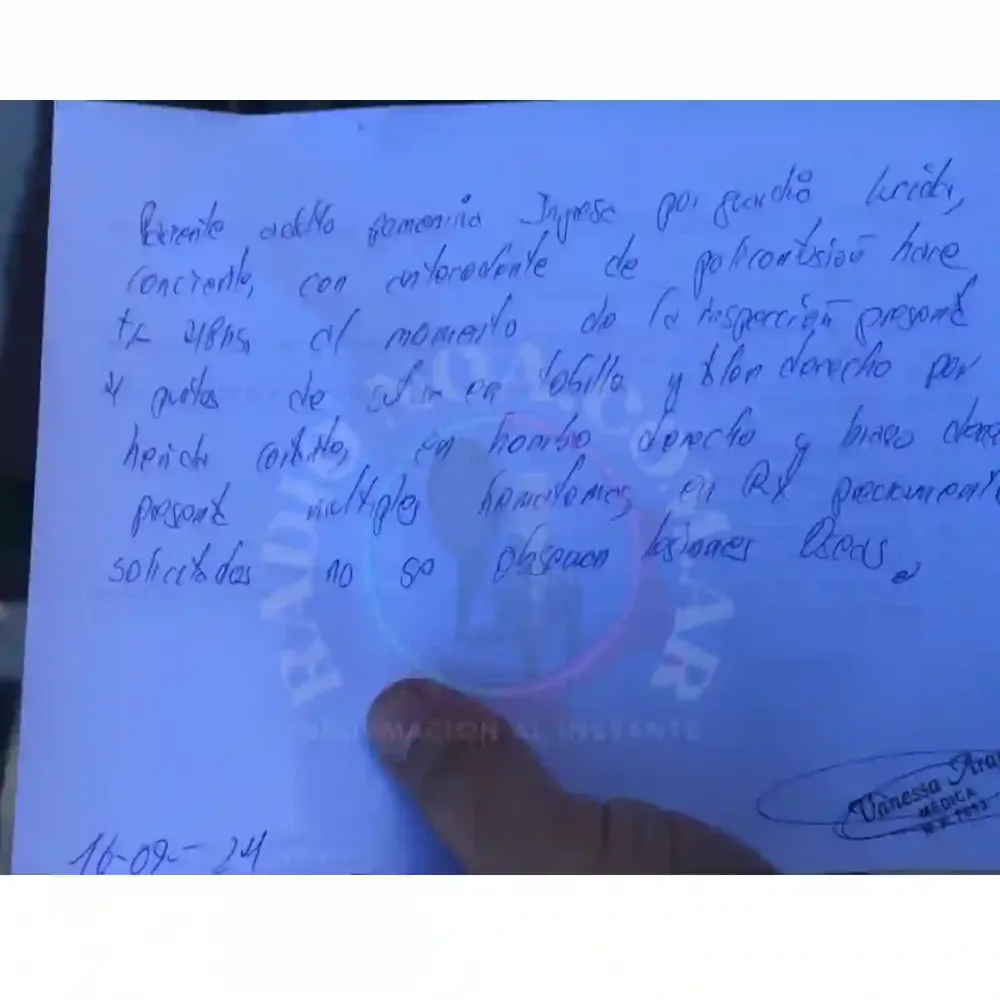 Paciente adulto femenina Ingresa por guardia lucida,
conciente, con antecedente de policontusión hace
+/- 48hs, al momento de la inspección present
4 puntos de sutura en tobillo y talon derecho por
herida cortante, en hombro derecho y brazo derec
present multiples hematomas en RX previamente
solicitadas no se observan lesiones Oseas.
RADIO XOAL.COM.AR
INFORMACION AL INSTANTE
Vanessa Ara
MÉDICA
16-09-24